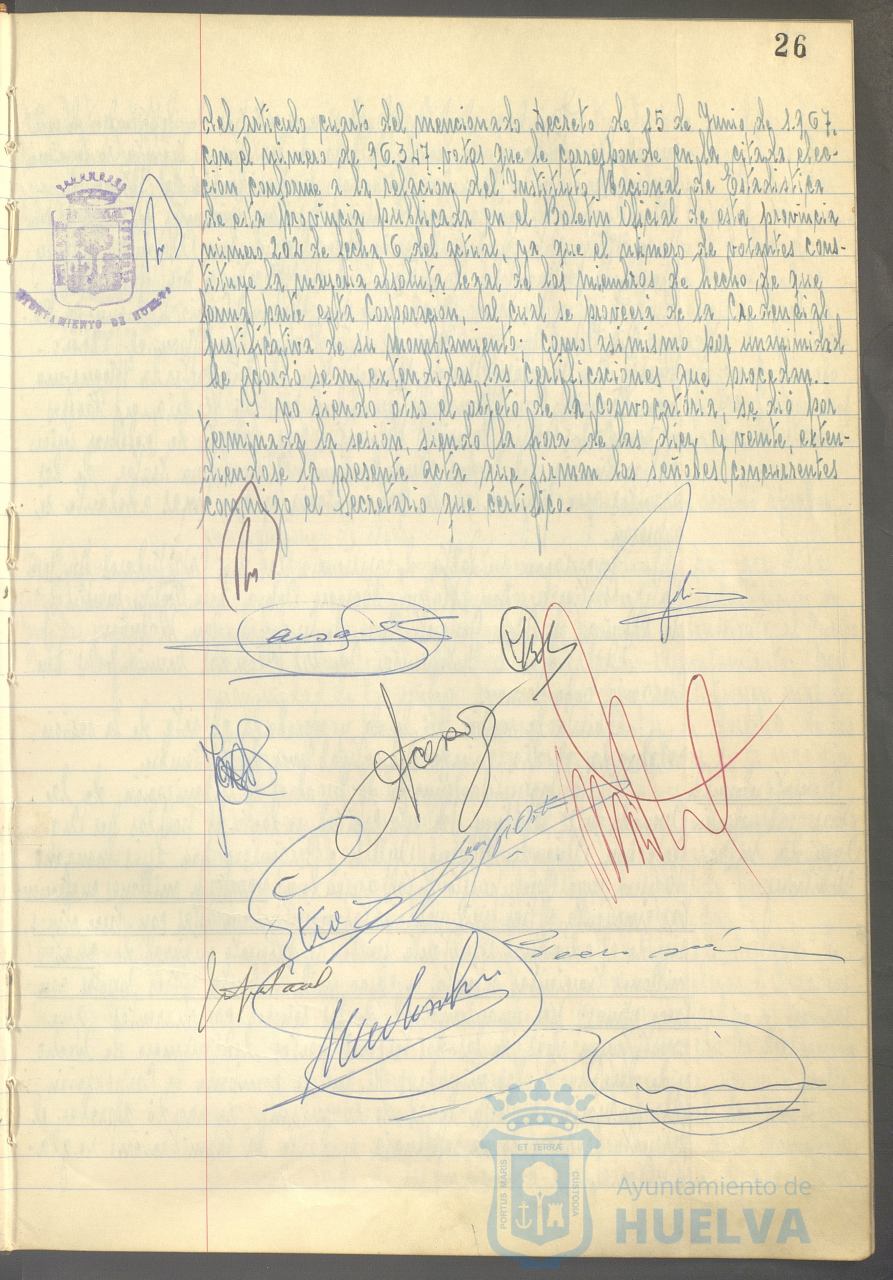 26
del artículo cuarto del mencionado Decreto de 15 de Junio de 1.967,
con el número de 96.347 votos que le corresponde en la citada elec-
ción conforme a la relación del Instituto Nacional de Estadística
de esta provincia publicada en el Boletín Oficial de esta provincia
número 202 de fecha 6 del actual, ya que el número de votantes cons-
tituye la mayoría absoluta legal de los miembros de hecho de que
forma parte esta Corporación, al cual se proveerá de la Credencial
justificativa de su nombramiento; como asimismo por unanimidad
se acordó sean extendidas las certificaciones que procedan.-
Y no siendo otro el objeto de la convocatoria, se dió por
terminada la sesión, siendo la hora de las diez y veinte, exten-
diéndose la presente acta que firman los señores concurrentes
conmigo el Secretario que certifico.
AYUNTAMIENTO DE HUELVA
ET TERRÆ
PORTUS MARIS
CUSTODIA
Ayuntamiento de
HUELVA